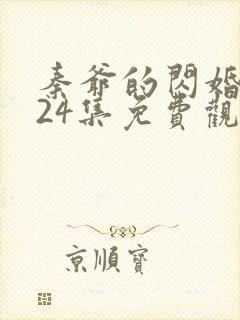 秦爺的閃婚
24集免費觀
京順寶